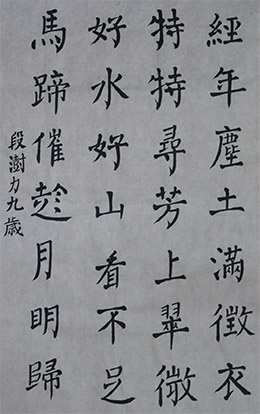 經年塵土滿徵衣
特特尋芳上翠微
好水好山看不足
馬蹄催趁月明歸
段澍力九歲